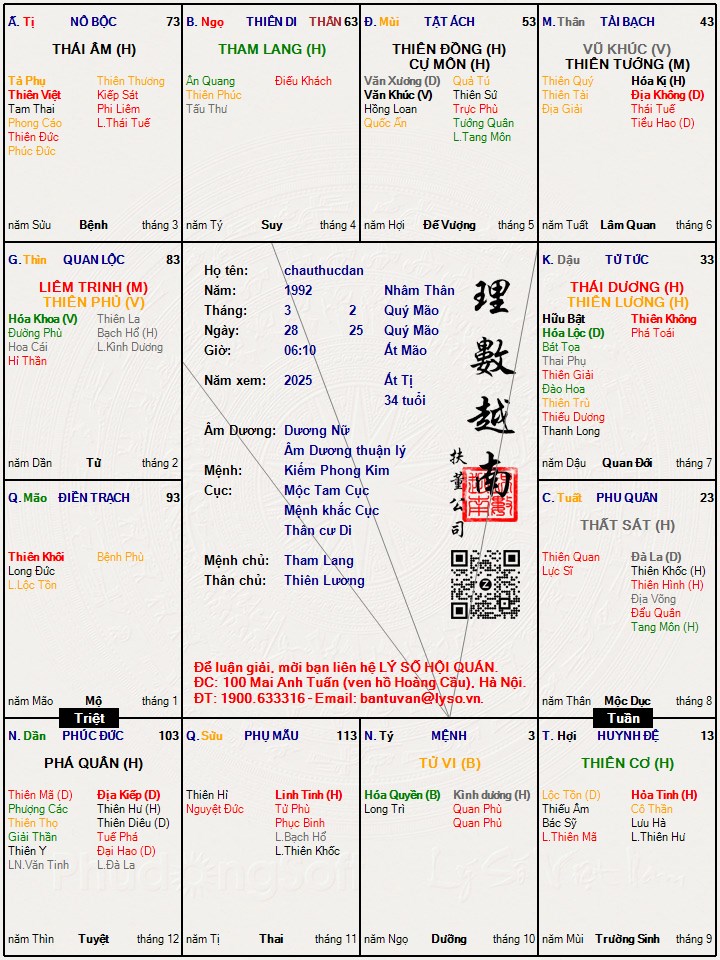 Ấ. Tị NÔ BỘC 73
THÁI ÂM (H)
Tả Phụ Thiên Thương
Thiên Việt Kiếp Sát
Tam Thai Phi Liêm
Phong Cáo L.Thái Tuế
Thiên Đức
Phúc Đức
năm Sửu Bệnh tháng 3
B. Ngọ THIÊN DI THÂN 63
THAM LANG (H)
Ân Quang Điếu Khách
Thiên Phúc
Tấu Thư
năm Tý Suy tháng 4
Đ. Mùi TẬT ÁCH 53
THIÊN ĐỒNG (H)
CỰ MÔN (H)
Văn Xương (D) Quả Tú
Văn Khúc (V) Thiên Sứ
Hồng Loan Trực Phù
Quốc Ấn Tướng Quân
L.Tang Môn
năm Hợi Đế Vượng tháng 5
M. Thân TÀI BẠCH 43
VŨ KHÚC (V)
THIÊN TƯỚNG (M)
Thiên Quý Hóa Kị (H)
Thiên Tài Địa Không (D)
Địa Giải Thái Tuế
Tiểu Hao (D)
năm Tuất Lâm Quan tháng 6
G. Thìn QUAN LỘC 83
LIÊM TRINH (M)
THIÊN PHỦ (V)
Hóa Khoa (V) Thiên La
Đường Phù Bạch Hổ (H)
Hoa Cái L.Kình Dương
Hỉ Thần
năm Dần Tử tháng 2
Họ tên: chauthucdan
Năm: 1992 Nhâm Thân
Tháng: 3 2 Quý Mão
Ngày: 28 25 Quý Mão
Giờ: 06:10 Ất Mão
Năm xem: 2025 Ất Tị
34 tuổi
Âm Dương: Dương Nữ
Âm Dương thuận lý
Mệnh: Kiếm Phong Kim
Cục: Mộc Tam Cục
Mệnh khắc Cục
Thân cư Di
Mệnh chủ: Tham Lang
Thân chủ: Thiên Lương
理
數
越
南
扶
董
公
司
Để luận giải, mời bạn liên hệ LÝ SỐ HỘI QUÁN.
ĐC: 100 Mai Anh Tuấn (ven hồ Hoàng Cầu), Hà Nội.
ĐT: 1900.633316 - Email: bantuvan@lyso.vn.
K. Dậu TỬ TỨC 33
THÁI DƯƠNG (H)
THIÊN LƯƠNG (H)
Hữu Bật Thiên Không
Hóa Lộc (D) Phá Toái
Bát Tọa
Thai Phụ
Thiên Giải
Đào Hoa
Thiên Trù
Thiếu Dương
Thanh Long
năm Dậu Quan Đới tháng 7
Q. Mão ĐIỀN TRẠCH 93
Thiên Khôi Bệnh Phù
Long Đức
L.Lộc Tồn
năm Mão Mộ tháng 1
C. Tuất PHU QUÂN 23
THẤT SÁT (H)
Thiên Quan Đà La (D)
Lực Sĩ Thiên Khốc (H)
Thiên Hình (H)
Địa Võng
Đẩu Quân
Tang Môn (H)
năm Thân Mộc Dục tháng 8
Triệt
Tuần
N. Dần PHÚC ĐỨC 103
PHÁ QUÂN (H)
Thiên Mã (D) Địa Kiếp (D)
Phượng Các Thiên Hư (H)
Thiên Thọ Thiên Diêu (D)
Giải Thần Tuế Phá
Thiên Y Đại Hao (D)
LN.Văn Tinh L.Đà La
năm Thìn Tuyệt tháng 12
Q. Sửu PHỤ MẪU 113
Thiên Hỉ Linh Tinh (H)
Nguyệt Đức Tử Phù
Phục Binh
L.Bạch Hổ
L.Thiên Khốc
năm Tị Thai tháng 11
N. Tý MỆNH 3
TỬ VI (B)
Hóa Quyền (B) Kình dương (H)
Long Trì Quan Phù
Quan Phủ
năm Ngọ Dưỡng tháng 10
T. Hợi HUYNH ĐỆ 13
THIÊN CƠ (H)
Lộc Tồn (D) Hỏa Tinh (H)
Thiếu Âm Cô Thần
Bác Sỹ Lưu Hà
L.Thiên Mã L.Thiên Hư
năm Mùi Trường Sinh tháng 9